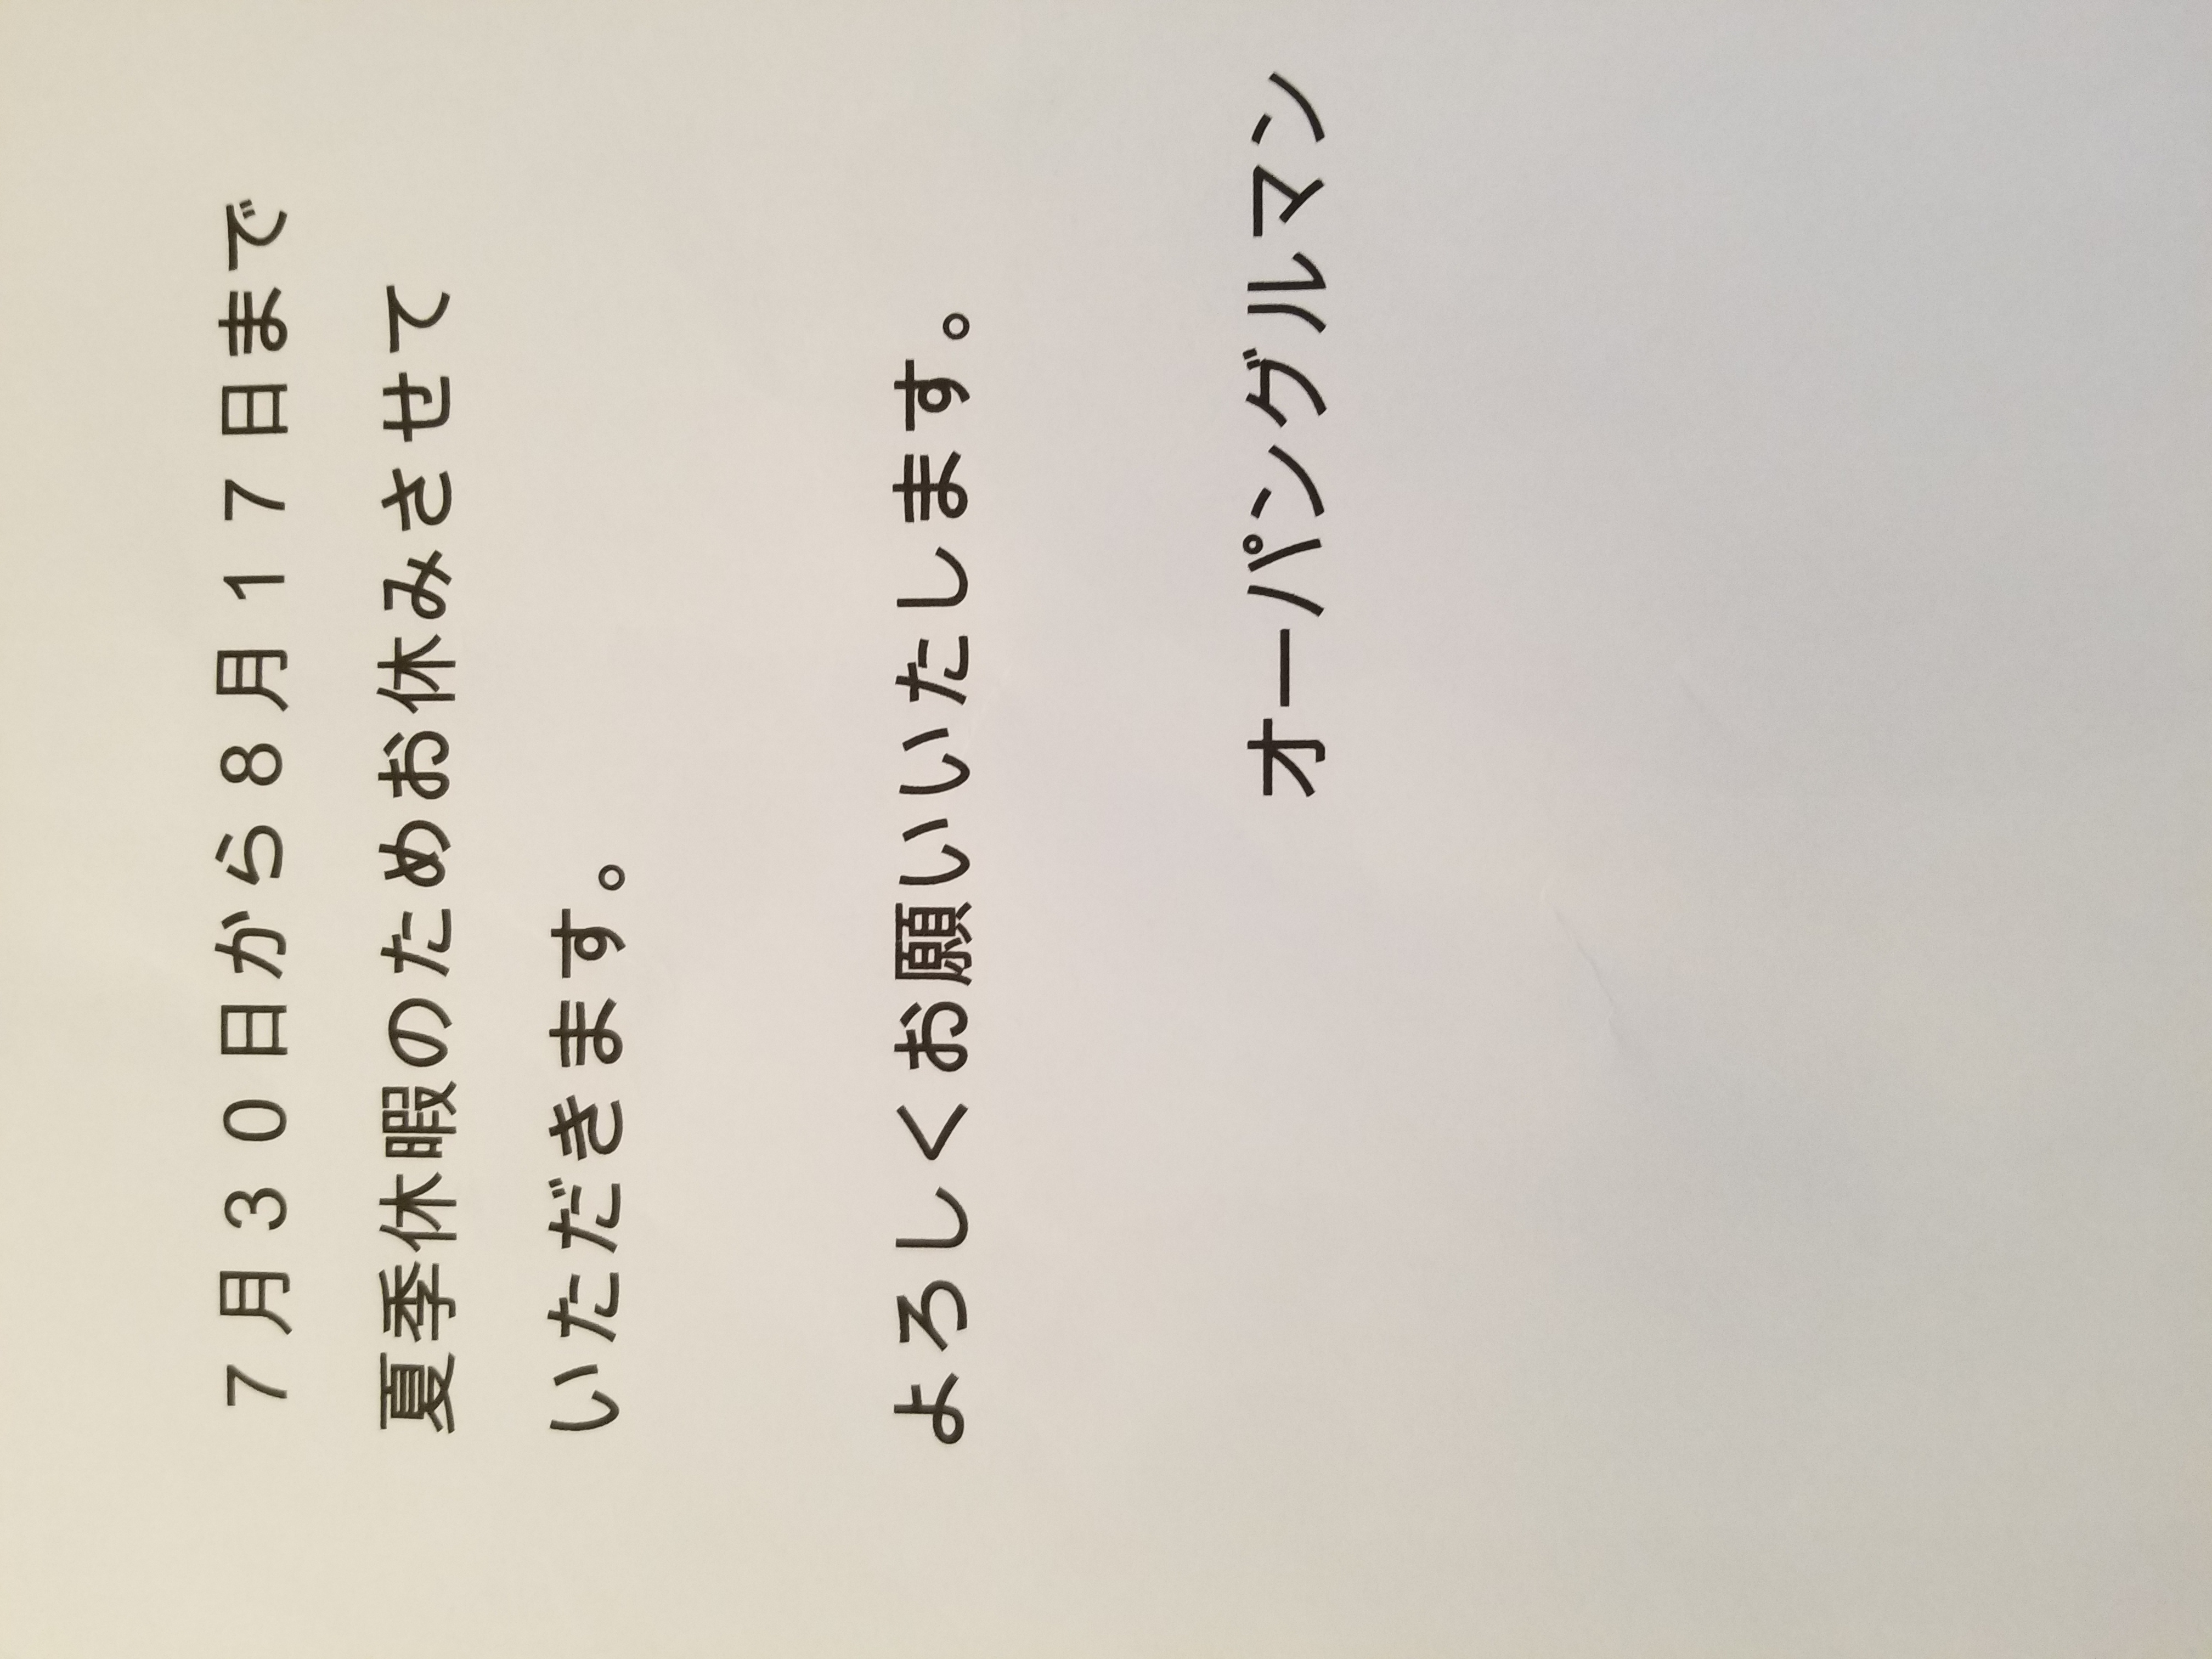 ７月３０日から８月１７日まで
夏季休暇のためお休みさせて
いただきます。
よろしくお願いいたします。
オーパングルマン